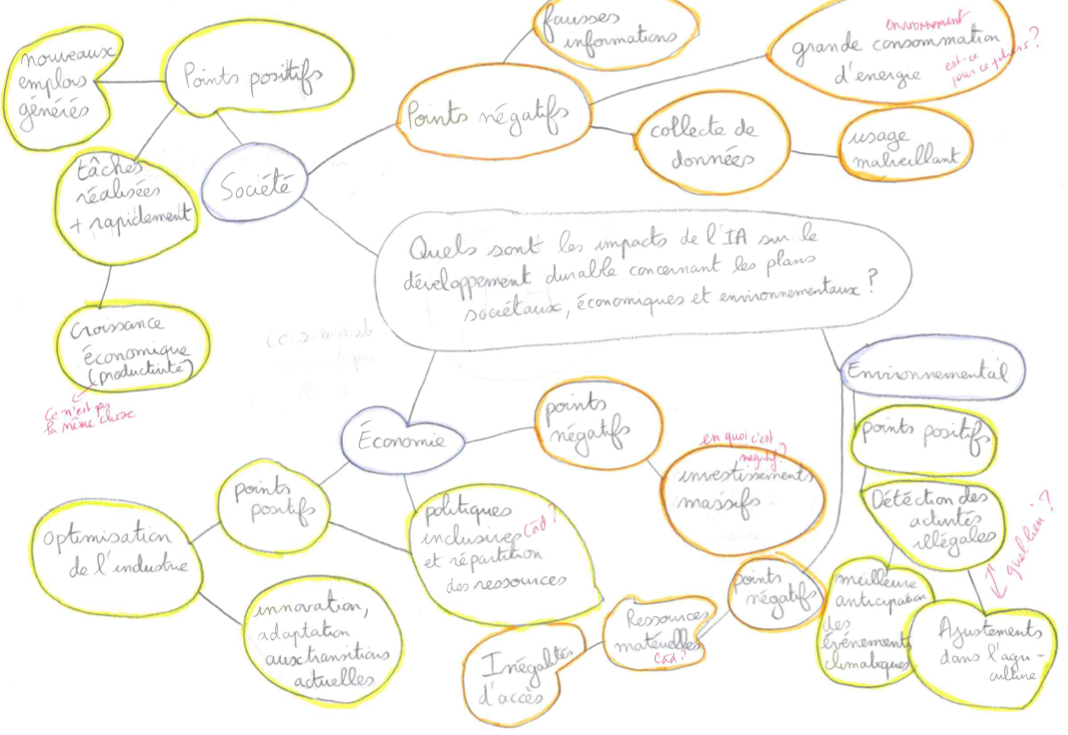 nouveaux
emplois
générés
Points positifs
tâches
réalisées
+ rapidement
Société
Croissance
économique
(productivité)
Ce n'est pas
la même chose
Points négatifs
fausses
informations
environnement
grande consommation
d'energie
est-ce
pour ce
?
collecte de
données
usage
malveillant
Quels sont les impacts de l'IA sur le
développement durable concernant les plans
sociétaux, économiques et environnementaux ?
Économie
points
négatifs
en quoi c'est
négatif?
investissements
massifs
points
positifs
optimisation
de l'industrie
innovation,
adaptation
aux transitions
actuelles
politiques
inclusives càd ?
et répartition
des ressources
Environnemental
points positifs
Détéction des
activités
illégales
quel lien ?
meilleure
anticipation
des
événements
climatiques
Ajustements
dans l'agri-
culture
points
négatifs
Ressources
matérielles
càd ?
Inégalités
d'accès